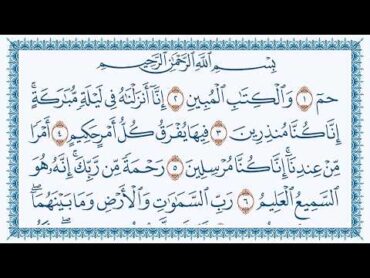 بِسْمِ ٱللَّهِ ٱلرَّحْمَٰنِ ٱلرَّحِيمِ
حمٓ ١ وَٱلْكِتَٰبِ ٱلْمُبِينِ ٢ إِنَّآ أَنزَلْنَٰهُ فِى لَيْلَةٍ مُّبَٰرَكَةٍ ۚ
إِنَّا كُنَّا مُنذِرِينَ ٣ فِيهَا يُفْرَقُ كُلُّ أَمْرٍ حَكِيمٍ ٤ أَمْرًا
مِّنْ عِندِنَآ ۚ إِنَّا كُنَّا مُرْسِلِينَ ٥ رَحْمَةً مِّن رَّبِّكَ ۚ إِنَّهُۥ هُوَ
ٱلسَّمِيعُ ٱلْعَلِيمُ ٦ رَبِّ ٱلسَّمَٰوَٰتِ وَٱلْأَرْضِ وَمَا بَيْنَهُمَآ ۖ